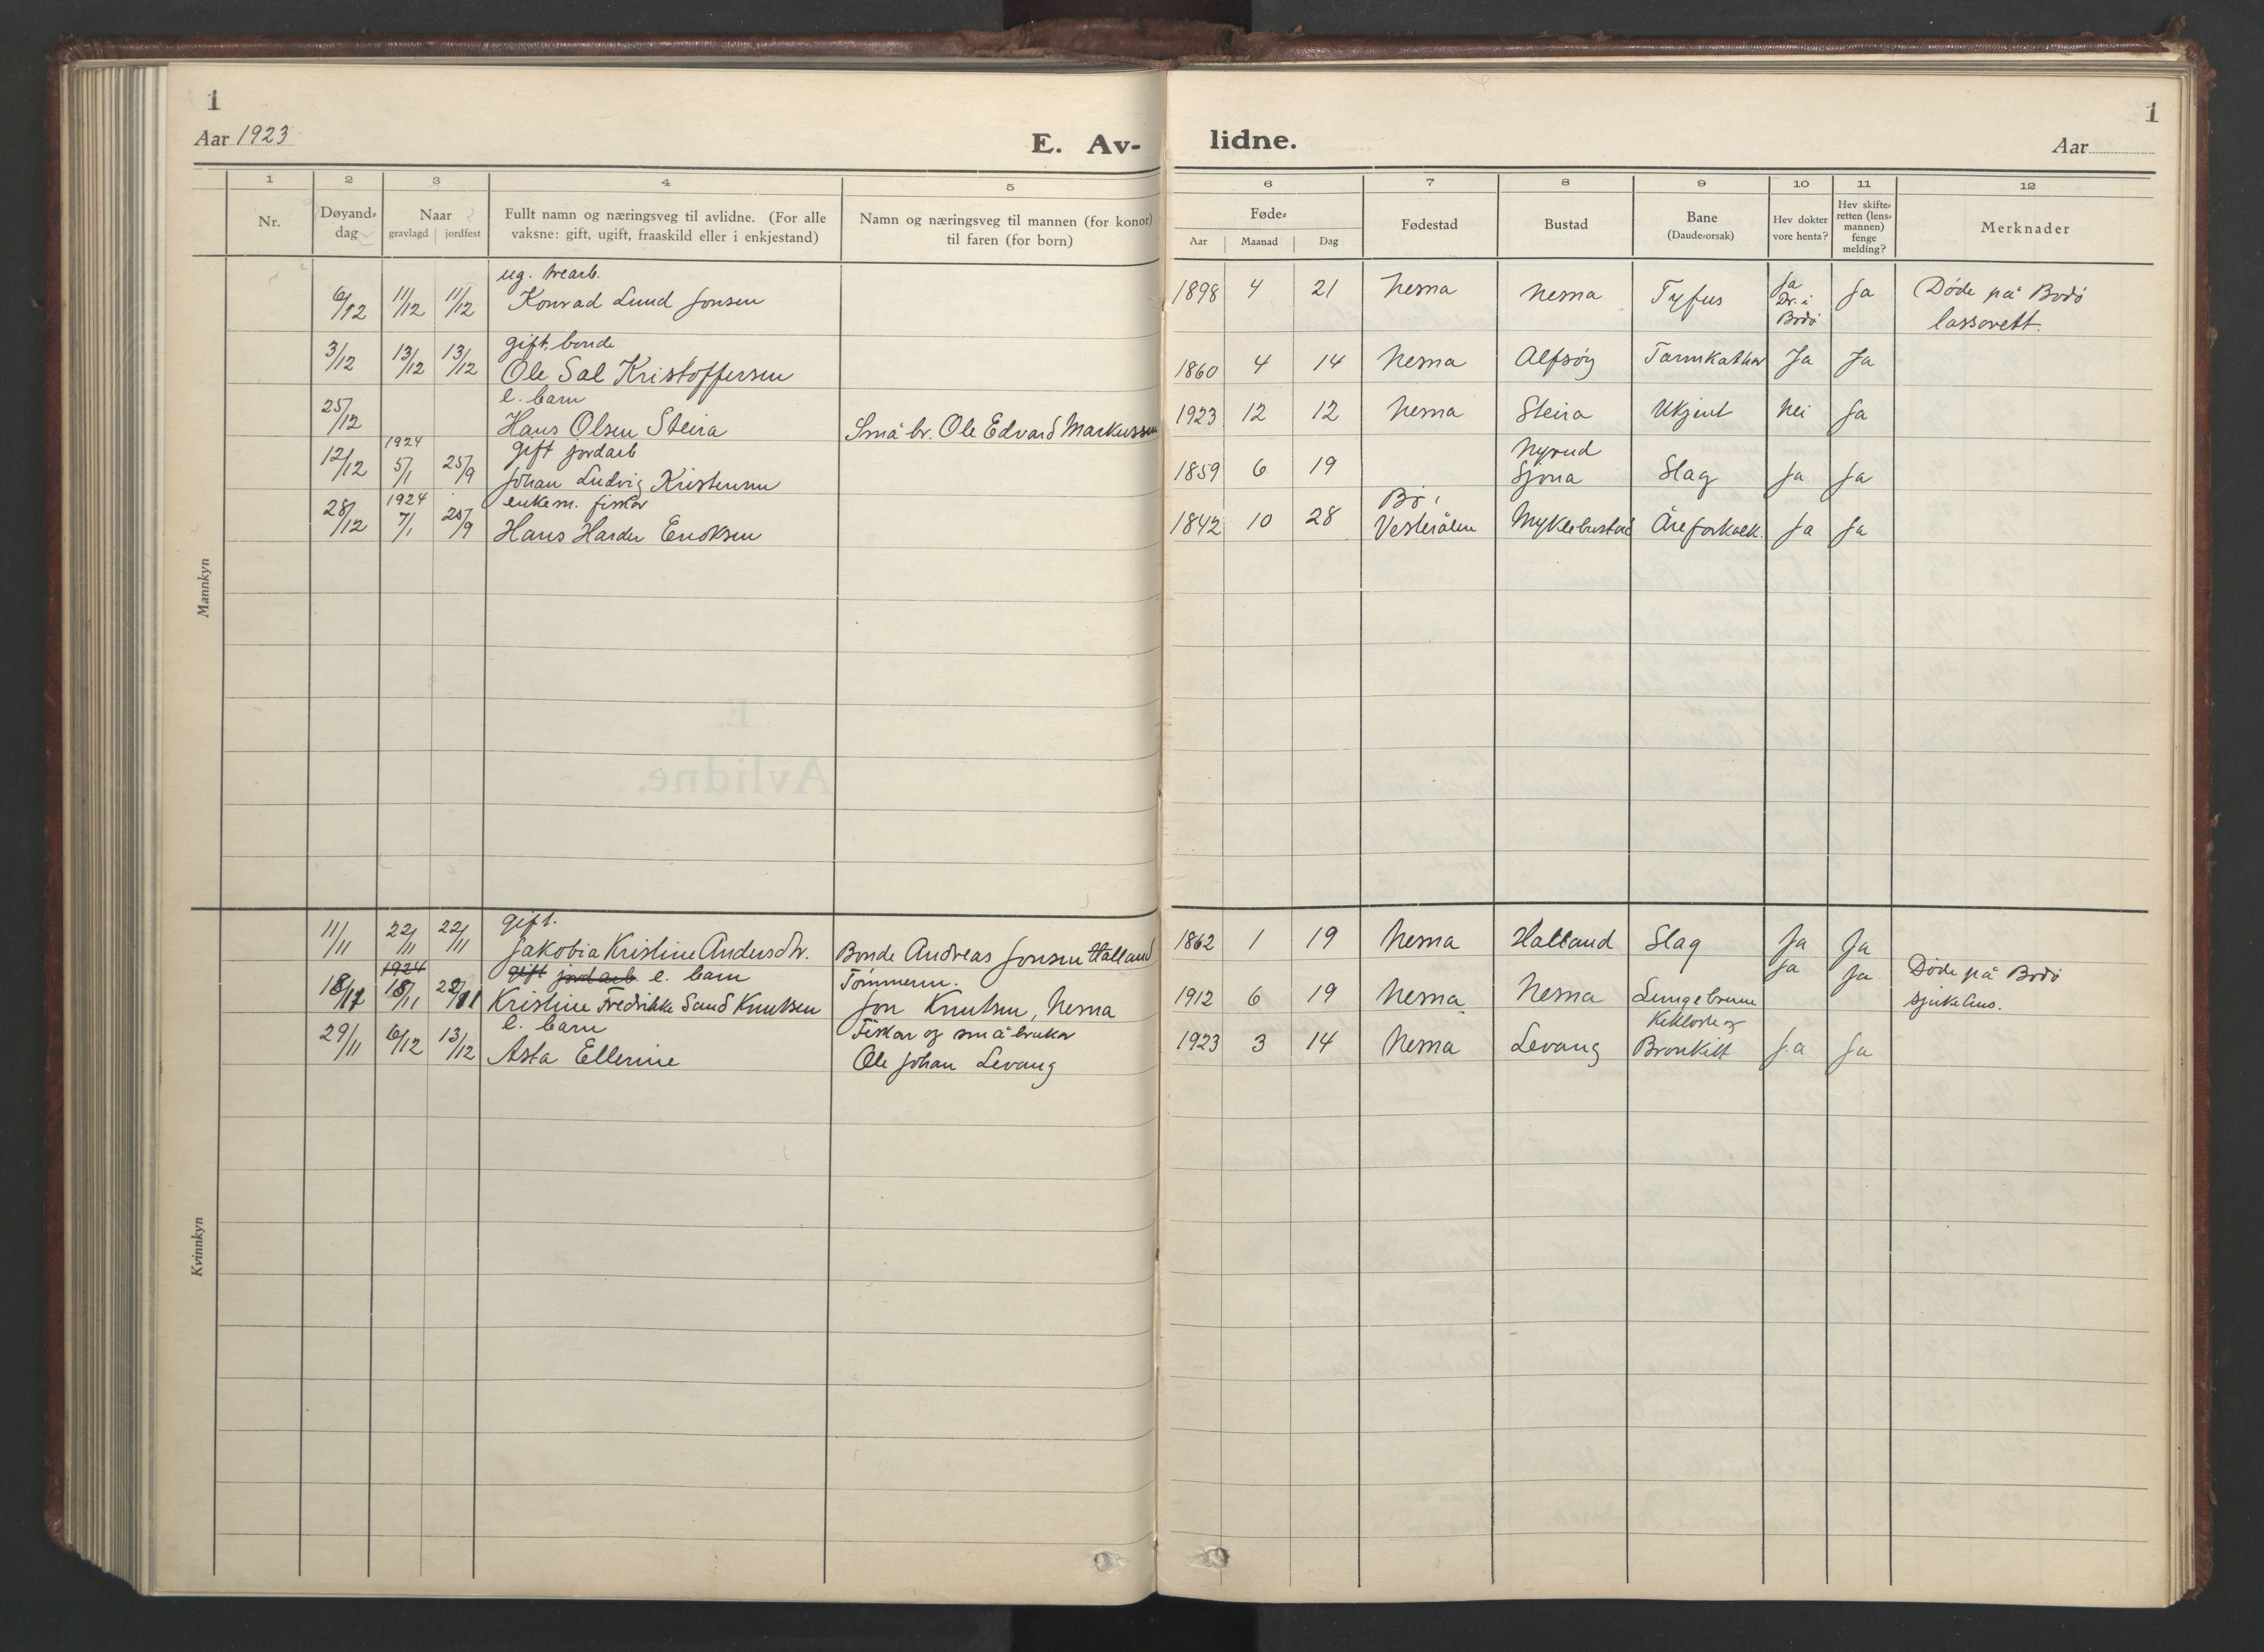 1
Aar 1923
E. Av-
1 2 3 4 5
Nr. Døyand-dag Naar gravlagd jordfest Fullt namn og næringsveg til avlidne. (For alle vaksne: gift, ugift, fraaskild eller i enkjestand) Namn og næringsveg til mannen (for konor) til faren (for born)
Mannkyn
ug. trearb.
6/12 11/12 11/12 Konrad Lund Jonsen
gift, bonde
3/12 13/12 13/12 Ole Sal Kristoffersen
e. barn
25/12 Hans Olsen Steira Små br. Ole Edvard Markussen
1924 gift jordarb
12/12 5/1 25/9 Johan Ludvig Kristensen
1924 enkem. fiskar
28/12 7/1 25/9 Hans Harder Enoksen
E.
Avlidne.
Kvinnkyn
gift.
11/11 22/11 22/11 Jakobia Kristine Andersdtr. Bonde Andreas Jonsen Halland
1924 gift jordarb e. barn Tømmerm.
18/11 22/11 Kristine Fredrikke Sand Knutsen Jon Knutsen, Nesna
e. barn Fiskar og småbrukar
29/11 6/12 13/12 Asta Ellerine Ole Johan Levang
1
lidne.
Aar
6 7 8 9 10 11 12
Føde- Aar Maanad Dag Fødestad Bustad Bane (Daude-orsak) Hev dokter vore henta? Hev skifte-retten (lens-mannen) fenge melding? Merknader
1898 4 21 Nesna Nesna Tyfus Ja Dr. i Bodø Ja Døde på Bodø
lassarett.
1860 4 14 Nesna Alfsøy Tarmkathar Ja Ja
1923 12 12 Nesna Steira Ukjent Nei Ja
Nyrud
1859 6 19 Sjona Slag Ja Ja
Bø i
1842 10 28 Vesterålen Myklebustad Åreforkalk. Ja Ja
1862 1 19 Nesna Halland Slag Ja Ja
Ja Ja Døde på Bodø
1912 6 19 Nesna Nesna Lungebrune sjukehus.
Kikhoste og
1923 3 14 Nesna Levang Bronkitt Ja Ja